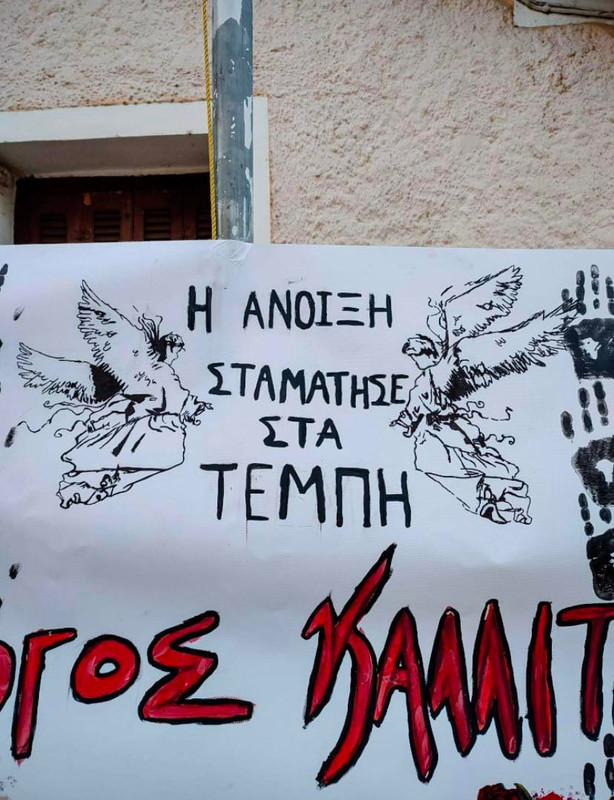 Η ΑΝΟΙΞΗ
ΣΤΑΜΑΤΗΣΕ
ΣΤΑ
ΤΕΜΠΗ
ΓΟΣ ΚΑΛΛΙΤ